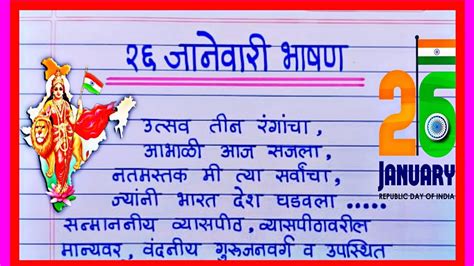 २६ जानेवारी भाषण
उत्सव तीन रंगांचा,
आभाळी आज सजला,
नतमस्तक मी त्या सर्वांचा,
ज्यांनी भारत देश घडवला .....
सन्माननीय व्यासपीठ, व्यासपीठावरील
मान्यवर, वंदनीय गुरुजनवर्ग व उपस्थित
26
JANUARY
REPUBLIC DAY OF INDIA